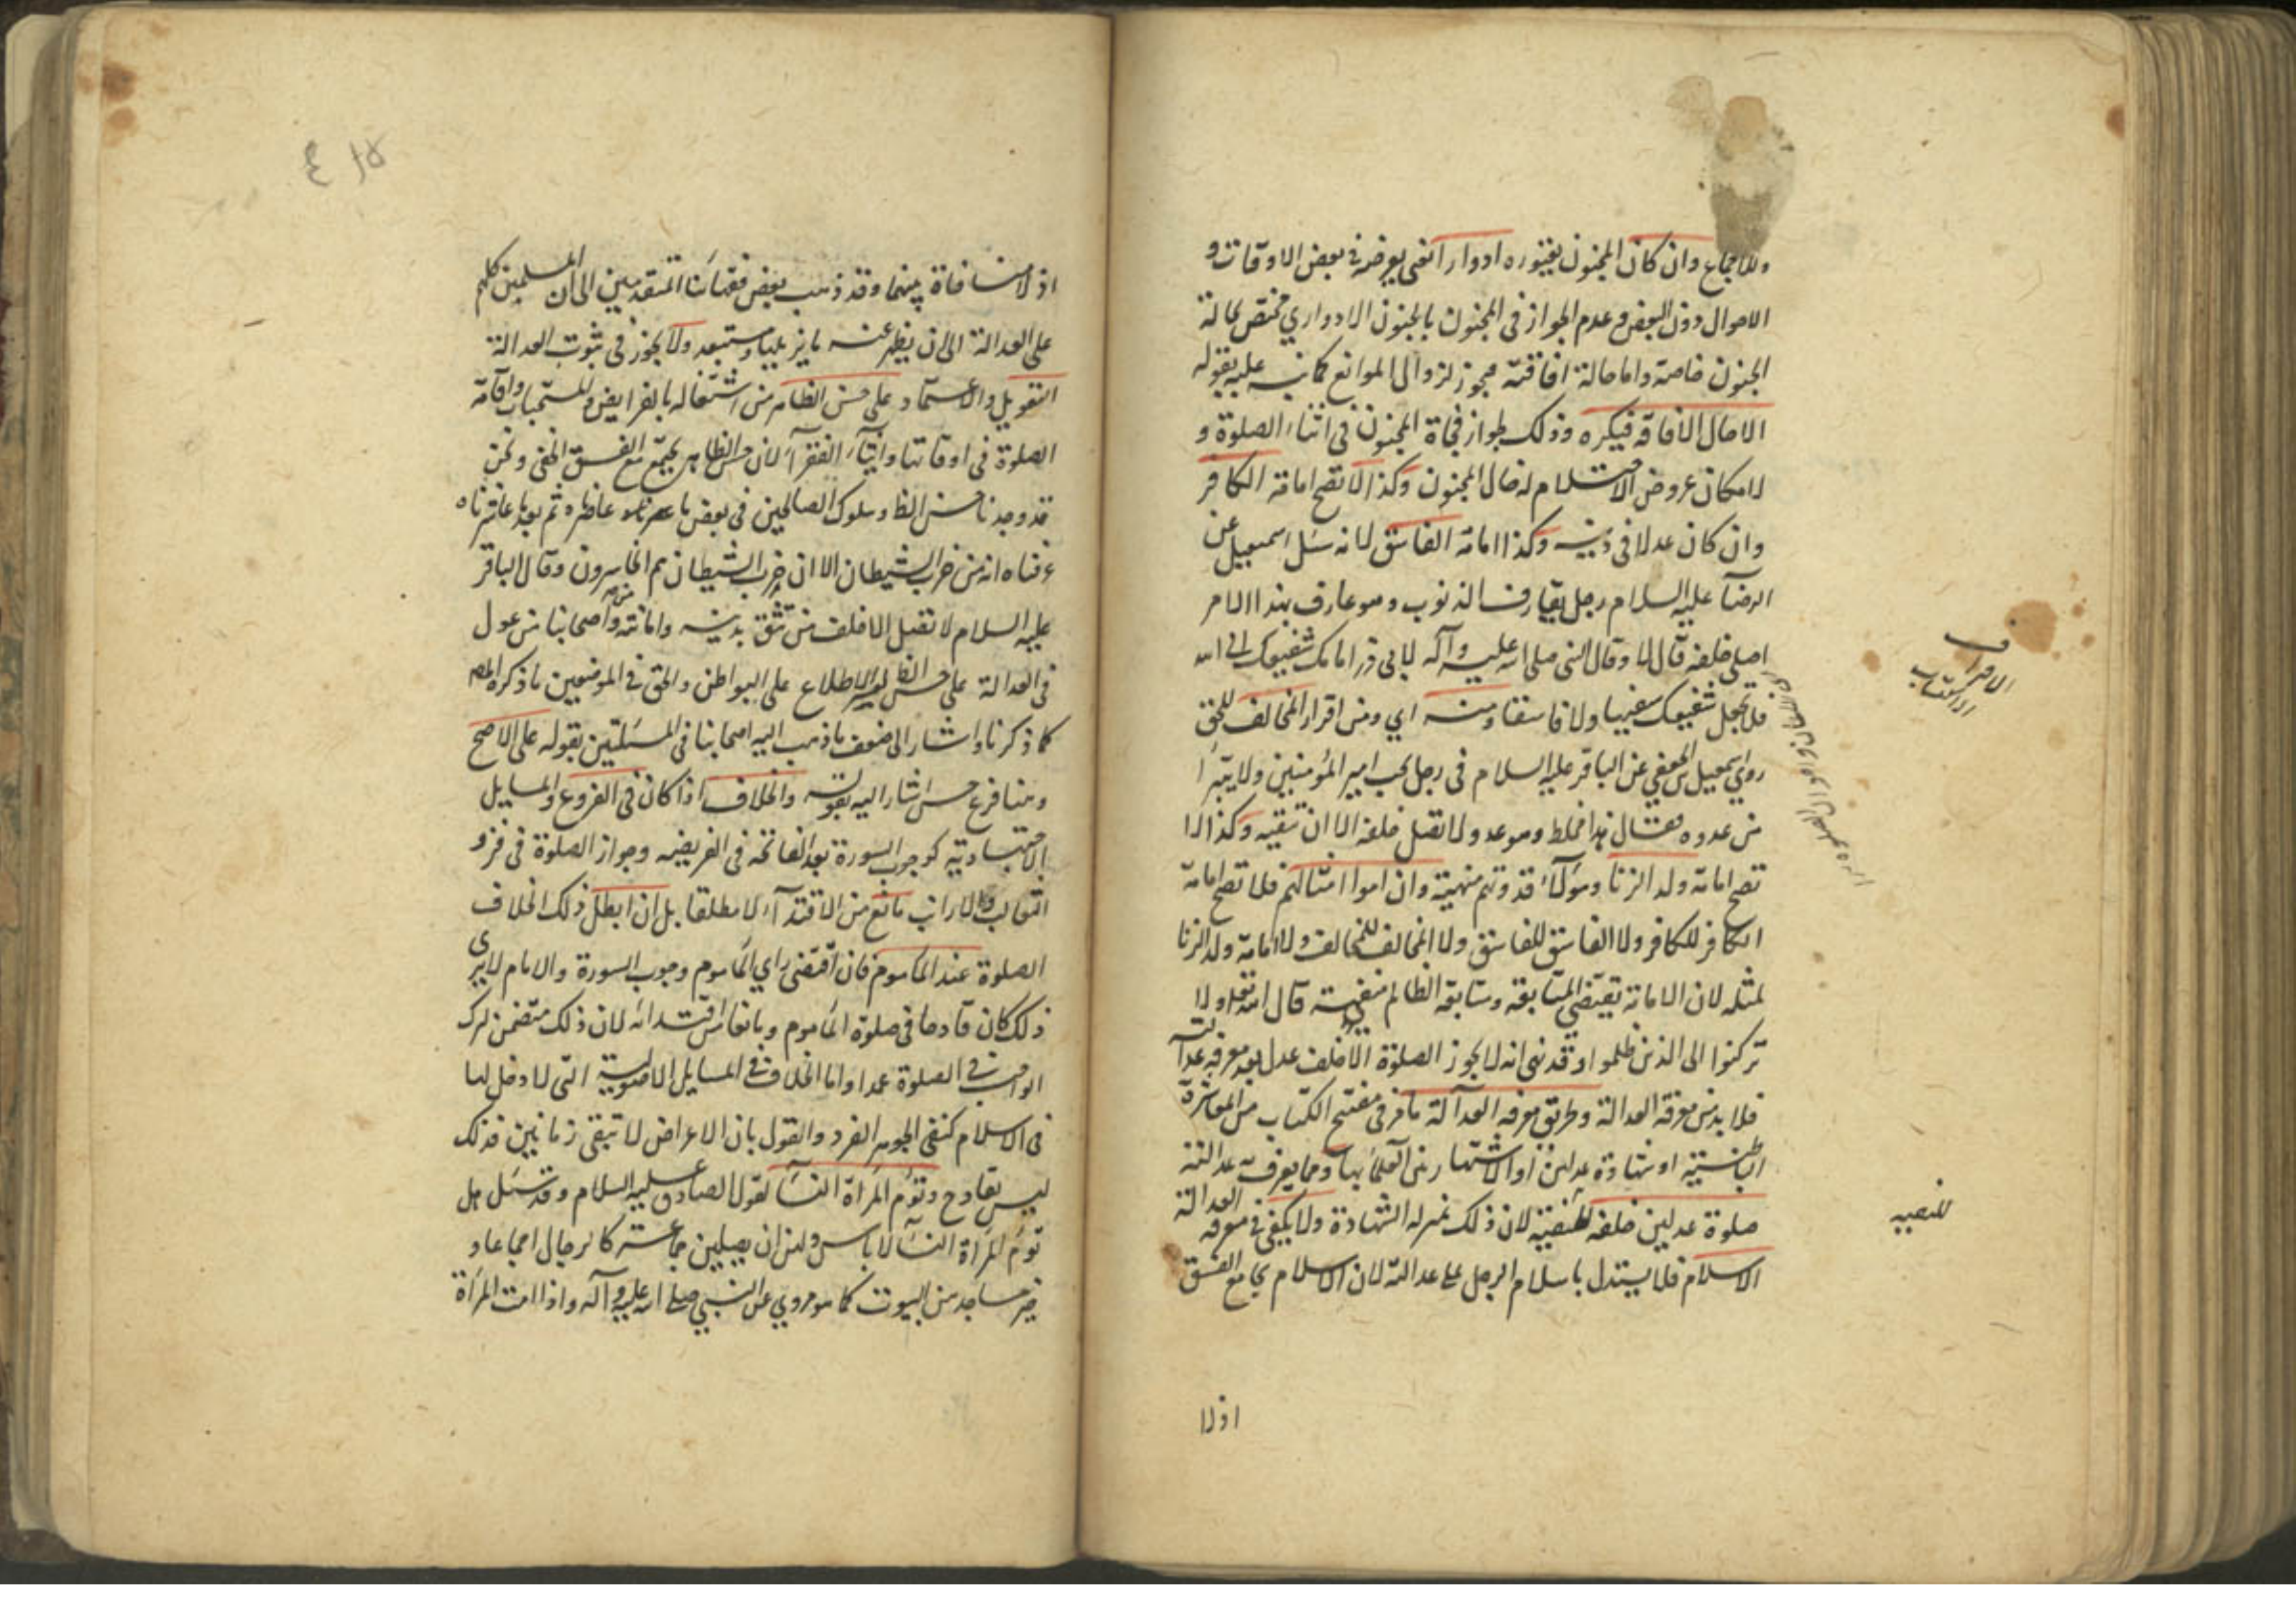 وللاجماع وان كان المجنون يعتوره ادوارا اتفى يعرضه في بعض الاوقات و
الاحوال دون البعض وعدم الجواز في المجنون بالجنون الادواري مختص بحالة
الجنون خاصة واما حالة افاقته فيجوز لزوال الموانع كما نبه عليه بقوله
الا حال الافاقه فيكره وذلك لجواز فجاة الجنون في اثناء الصلوة و
لامكان عروض الاحتلام له حال الجنون وكذا لا تصح امامة الكافر
وان كان عدلا في دينه وكذا امامة الفاسق لانه سئل اسمعيل عن
الرضا عليه السلام رجل يقارف الذنوب وهو عارف بهذا الامر
اصلي خلفه قال لا وقال النبي صلى الله عليه وآله لابي ذر امامك شفيعك الى الله
فلا تجعل شفيعك سفيها ولا فاسقا ومنه اي ومن اقرار المخالف للحق
روى اسمعيل الجعفي عن الباقر عليه السلام في رجل يحب امير المؤمنين ولا يتبرأ
من عدوه فقال هذا مخلط وهو عدو لا تصل خلفه الا ان تتقيه وكذا لا
تصح امامة ولد الزنا وهؤلاء قدوتهم منهية وان اموا امثالهم فلا تصح امامة
الكافر للكافر ولا الفاسق للفاسق ولا المخالف للمخالف ولا امامة ولد الزنا
لمثله لان الامامة تقتضي المتابعة ومتابعة الظالم منفية قال الله تعالى ولا
تركنوا الى الذين ظلموا وقد نهى انه لا يجوز الصلوة الا خلف عدل بعد معرفة عدالته
فلا بد من معرفة العدالة وطريق معرفة العدالة ما مر في مفتتح الكتاب من المعاشرة
الباطنية او شهادة عدلين او الاشتهار من العلماء بها ومما يعرف به عدالته
صلوة عدلين خلفه لانه ذلك بمنزلة الشهادة ولا يكفي في معرفة العدالة
الاسلام فلا يستدل باسلام الرجل على عدالته لان الاسلام يجامع الفسق
الاقراف
الاكتساب
للتنبيه
اذ لا
اذ لا منافاة بينهما وقد ذهب بعض فقهائنا المتقدمين الى ان المسلمين كلهم
على العدالة الى ان يظهر عنه ما يزيلها ومستبعد ولا يجوز في ثبوت العدالة
التعويل والاعتماد على حسن الظاهر من اشتغاله بالفرايض والمستحبات واقامة
الصلوة في اوقاتها وايتاء الفقراء لان حسن الظاهر يجتمع مع الفسق الخفي ونحن
قد وجدنا حسن الظاهر وسلوك الصالحين في بعض ما ثم بعد ما عاشرناه
عرفناه انه من حزب الشيطان الا ان حزب الشيطان هم الخاسرون وقال الباقر
عليه السلام لا تصل الا خلف من تثق بدينه وامانته ومن اصحابنا من عول
في العدالة على حسن الظاهر لعسر الاطلاع على البواطن والحق في الموضعين ما ذكره المصـ
كما ذكرنا واشار الى ضعف ما ذهب اليه اصحابنا في المسئلتين بقوله على الاصح
وهنا فرع حسن اشار اليه بقوله والخلاف اذا كان في الفروع والمسايل
الاجتهادية كوجوب السورة بعد الفاتحة في الفريضة وجواز الصلوة في فرو
الثعالب والارانب مانع من الاقتداء لا مطلقا بل ان ابطل ذلك الخلاف
الصلوة عند الماموم فان اقتضى راي الماموم وجوب السورة والامام لا يرى
ذلك كان قادحا في صلوة الماموم ومانعا من اقتدائه لان ذلك متضمن لترك
الواجب في الصلوة عمدا واما الخلاف في المسايل الاصولية التي لا دخل لها
في الاسلام كنفي الجوهر الفرد والقول بان الاعراض لا تبقى زمانين فذلك
ليس بقادح وتؤم المراة النساء لقول الصادق عليه السلام وقد سئل هل
تؤم المراة النساء لا باس ولهن ان يصلين جماعة كالرجال اجماعا و
خير مساجدهن البيوت كما هو مروي عن النبي صلى الله عليه وآله واذا امت المراة